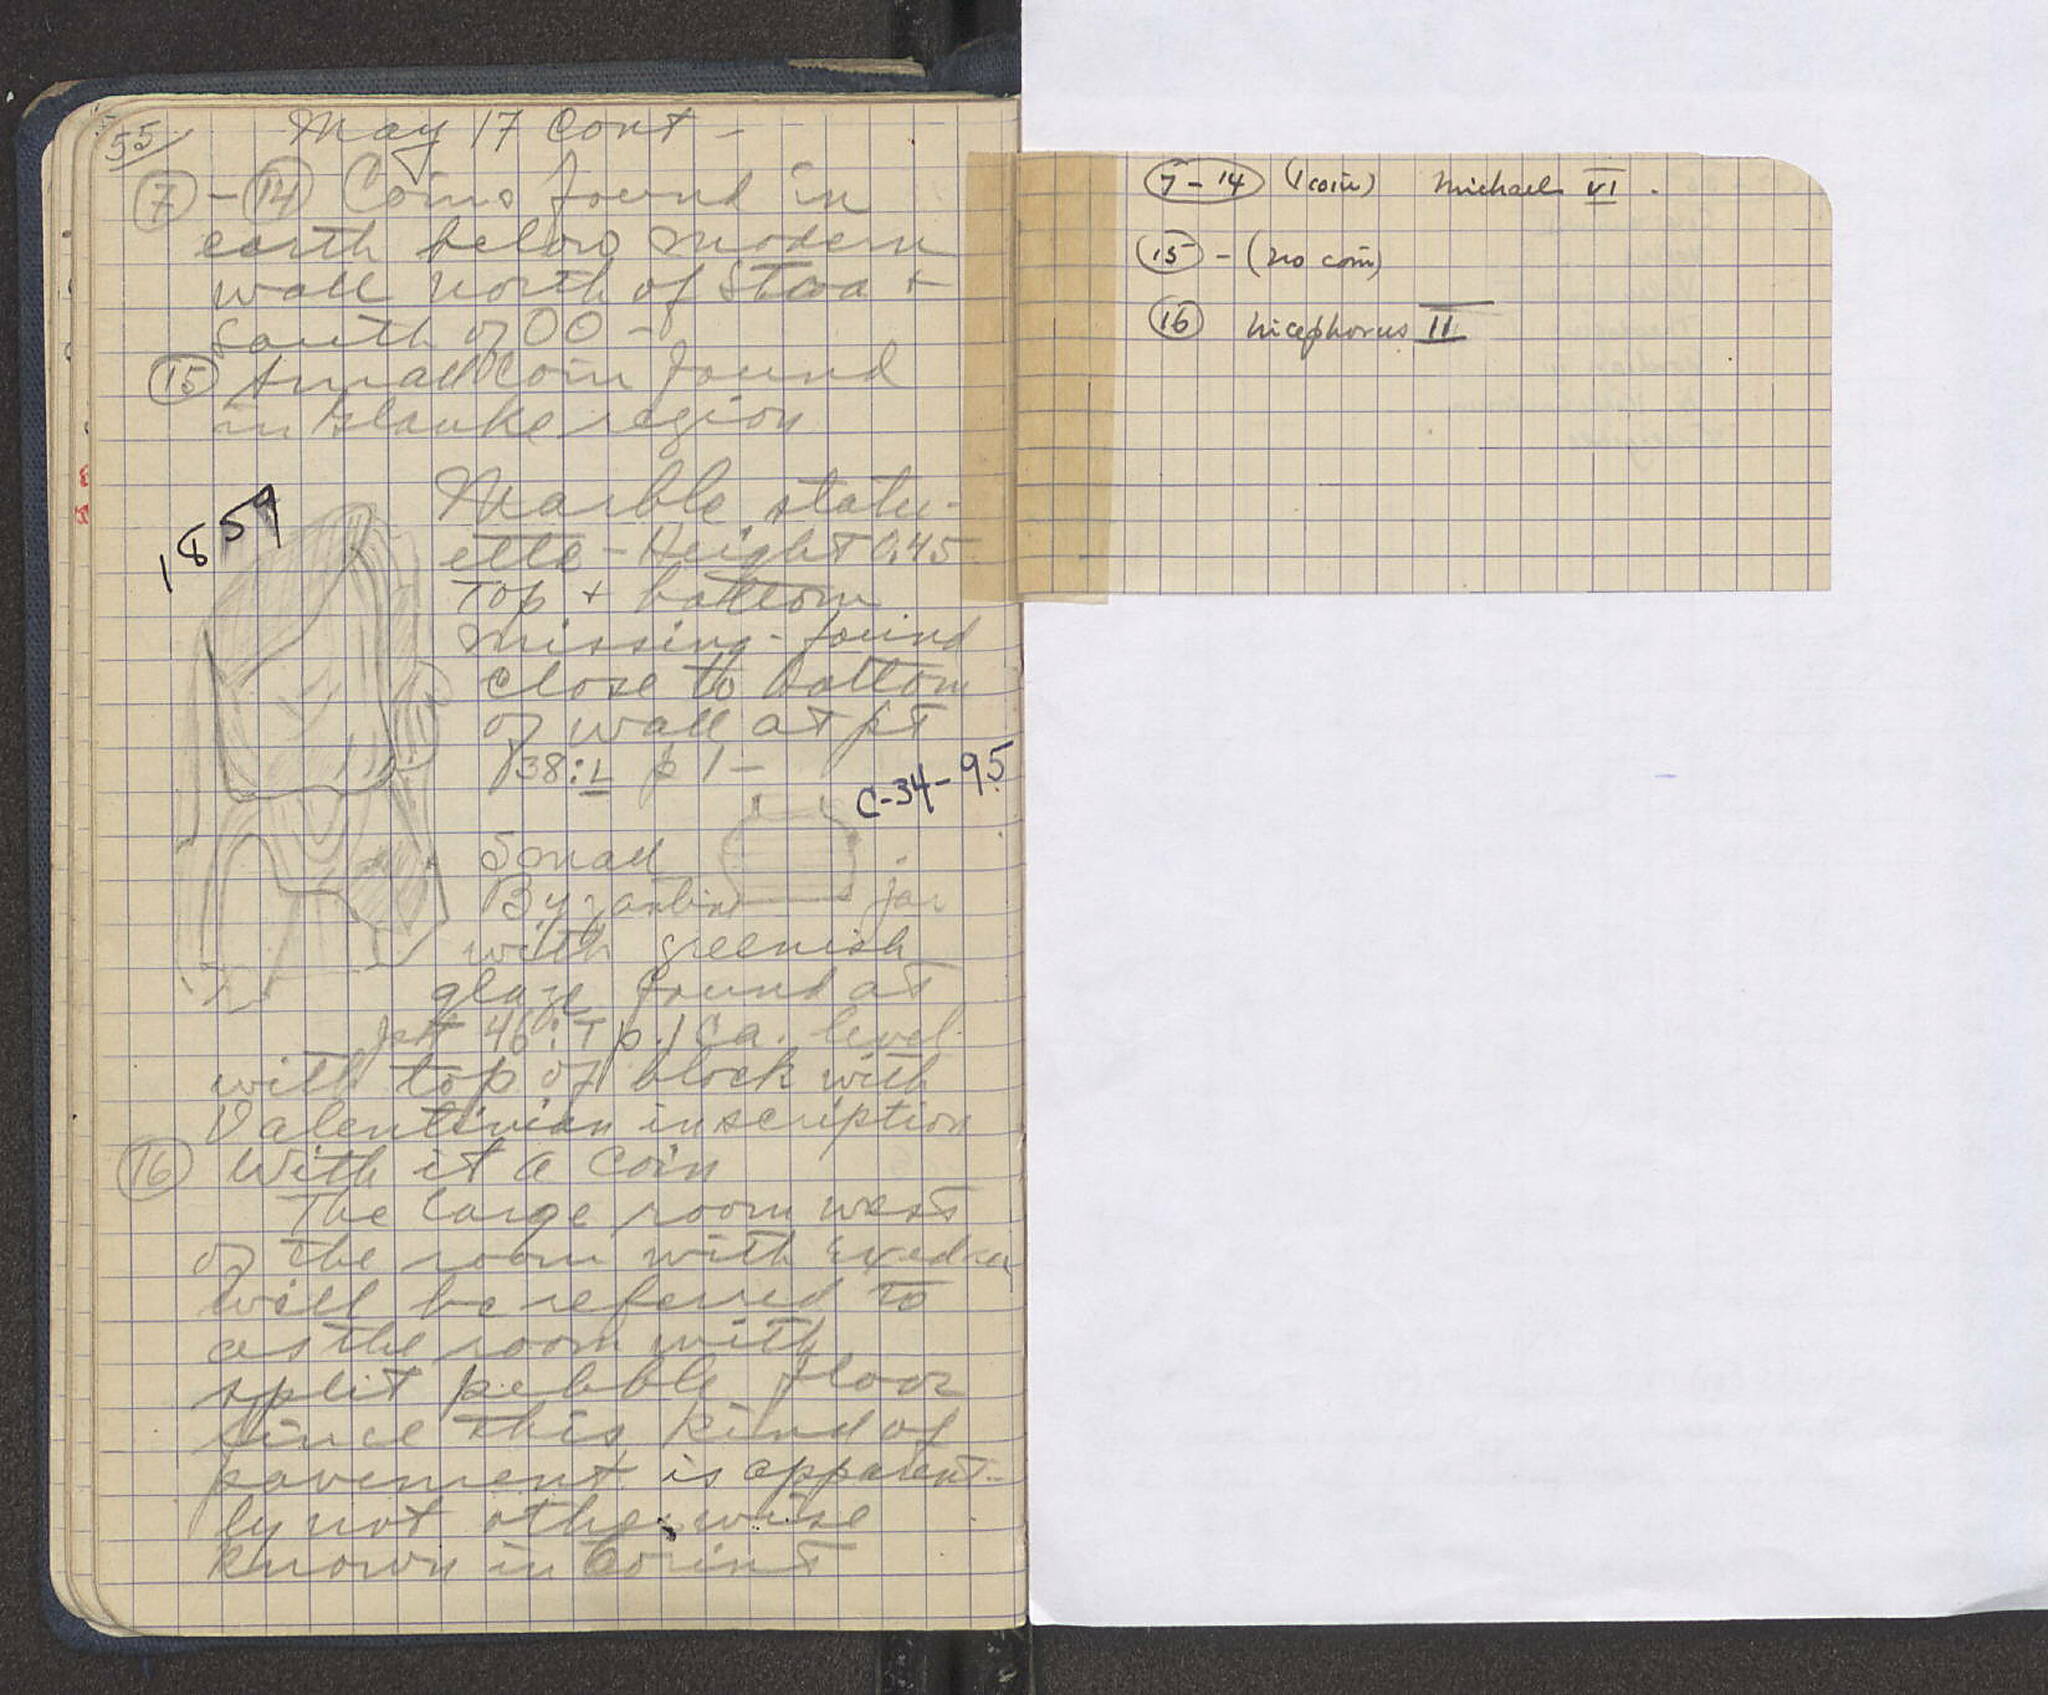 55
May 17 Cont -
(7) - (14) Coins found in
earth below modern
wall north of Stoa +
South of OO -
(15) Small Coin found
in Glauke region
1859
Marble statu-
ette - Height 0.45
Top + bottom
missing - found
close to bottom
of wall at pt
38:L p 1 -
C-34-95
Small
Byzantine jar
with greenish
glaze found at
pt 46:T p.1 Ca. level
with top of block with
Valentinian inscription
(16) With it a coin
The large room west
of the room with exedra
will be referred to
as the room with
split pebble floor
since this kind of
pavement is apparent-
ly not otherwise
known in Corint
(7-14) (1 coin) Michael VI.
(15) - (no coin)
(16) Nicephorus III